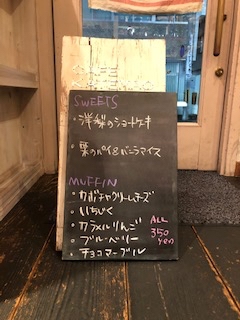 SWEETS
・洋梨のショートケーキ
・栗のパイ&バニラアイス
MUFFIN
・カボチャクリームチーズ
・いちじく
・カラメルりんご
・ブルーベリー
・チョコマーブル
ALL
350
yen